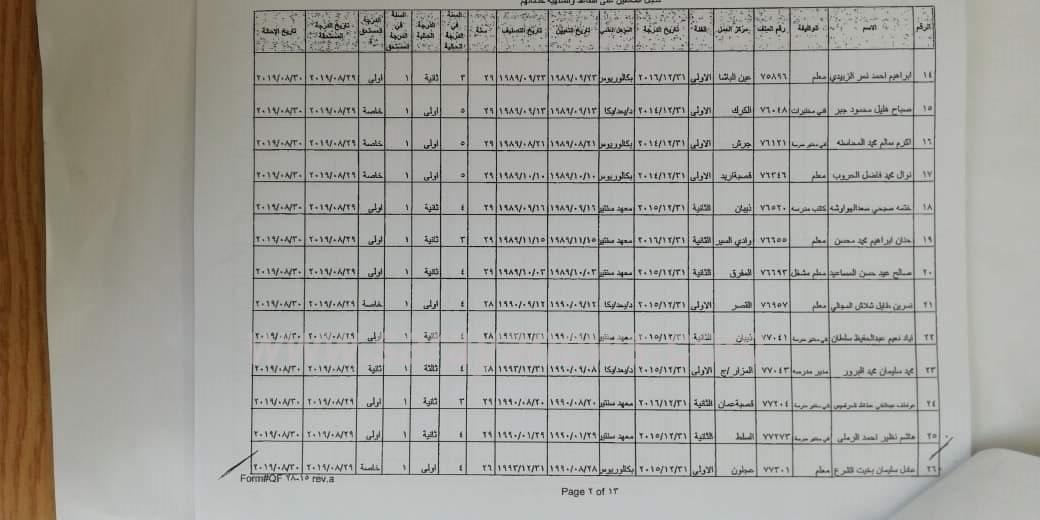 الرقم الاسم الوظيفة رقم الملف مركز العمل الفئة تاريخ الدرجة المؤهل العلمي تاريخ التعيين تاريخ التصنيف سنة السنة في الدرجة الحالية الدرجة الحالية السنة في الدرجة المستحق الدرجة المستحق تاريخ الدرجة المستحقة تاريخ الإحالة
١٤ ابراهيم احمد نمر الزبيدي معلم ٧٥٨٩٦ عين الباشا الاولى ٢٠١٦/١٢/٣١ بكالوريوس ١٩٨٩/٠٩/٢٣ ١٩٨٩/٠٩/٢٣ ٢٩ ٣ ثانية ١ أولى ٢٠١٩/٠٨/٢٩ ٢٠١٩/٠٨/٣٠
١٥ صباح خليل محمود جبر فني مختبرات ٧٦٠٤٨ الكرك الاولى ٢٠١٤/١٢/٣١ ١٩٨٩/٠٩/١٣ ١٩٨٩/٠٩/١٣ ٢٩ ٥ أولى ١ خاصة ٢٠١٩/٠٨/٢٩ ٢٠١٩/٠٨/٣٠
١٦ اكرم سالم محمد المحاسنه ٧٦١٢١ جرش الاولى ٢٠١٤/١٢/٣١ بكالوريوس ١٩٨٩/٠٨/٢١ ١٩٨٩/٠٨/٢١ ٢٩ ٥ أولى ١ خاصة ٢٠١٩/٠٨/٢٩ ٢٠١٩/٠٨/٣٠
١٧ نوال محمد فاضل الحروب معلم ٧٦٣٤٦ قصبة اربد الاولى ٢٠١٤/١٢/٣١ بكالوريوس ١٩٨٩/١٠/١٠ ١٩٨٩/١٠/١٠ ٢٩ ٥ أولى ١ خاصة ٢٠١٩/٠٨/٢٩ ٢٠١٩/٠٨/٣٠
١٨ ختمه صبحي سعد الهواوشه كاتب مدرسه ٧٦٥٢٠ ذيبان الثانية ٢٠١٥/١٢/٣١ معهد سنتين ١٩٨٩/٠٩/١٦ ١٩٨٩/٠٩/١٦ ٢٩ ٤ ثانية ١ أولى ٢٠١٩/٠٨/٢٩ ٢٠١٩/٠٨/٣٠
١٩ حنان ابراهيم محمد محسن معلم ٧٦٦٥٥ وادي السير الثانية ٢٠١٦/١٢/٣١ معهد سنتين ١٩٨٩/١١/١٥ ١٩٨٩/١١/١٥ ٢٩ ٣ ثانية ١ أولى ٢٠١٩/٠٨/٢٩ ٢٠١٩/٠٨/٣٠
٢٠ صالح عيد حسن المساعيد معلم مشغل ٧٦٦٩٣ المفرق الثانية ٢٠١٥/١٢/٣١ معهد سنتين ١٩٨٩/١٠/٠٣ ١٩٨٩/١٠/٠٣ ٢٩ ٤ ثانية ١ أولى ٢٠١٩/٠٨/٢٩ ٢٠١٩/٠٨/٣٠
٢١ نسرين طايل شلاش المجالي معلم ٧٦٩٥٧ القصر الاولى ٢٠١٥/١٢/٣١ ١٩٩٠/٠٩/١٢ ١٩٩٠/٠٩/١٢ ٢٨ ٤ أولى ١ خاصة ٢٠١٩/٠٨/٢٩ ٢٠١٩/٠٨/٣٠
٢٢ اياد نعيم عبدالحفيظ سلطان ٧٧٠٤١ ذيبان الثانية ٢٠١٥/١٢/٣١ معهد سنتين ١٩٩٣/١٢/٣١ ٢٨ ٤ ثانية ١ أولى ٢٠١٩/٠٨/٢٩ ٢٠١٩/٠٨/٣٠
٢٣ محمد سليمان محمد البرور مدير مدرسه ٧٧٠٤٣ المزار /ج الاولى ٢٠١٥/١٢/٣١ ١٩٩٠/٠٩/٠٨ ١٩٩٣/١٢/٣١ ٢٨ ٤ ثالثة ١ ثانية ٢٠١٩/٠٨/٢٩ ٢٠١٩/٠٨/٣٠
٢٤ ٧٧٢٠٤ قصبة عمان الثانية ٢٠١٦/١٢/٣١ معهد سنتين ١٩٩٠/٠٨/٢٠ ١٩٩٠/٠٨/٢٠ ٢٩ ٣ ثانية ١ أولى ٢٠١٩/٠٨/٢٩ ٢٠١٩/٠٨/٣٠
٢٥ هاشم نظير احمد الرملي ٧٧٢٧٣ السلط الثانية ٢٠١٥/١٢/٣١ معهد سنتين ١٩٩٠/٠١/٢٩ ١٩٩٠/٠١/٢٩ ٢٩ ٤ ثانية ١ أولى ٢٠١٩/٠٨/٢٩ ٢٠١٩/٠٨/٣٠
٢٦ عادل سليمان بخيت الشرع معلم ٧٧٣٠١ عجلون الاولى ٢٠١٥/١٢/٣١ بكالوريوس ١٩٩٠/٠٨/٢٨ ١٩٩٣/١٢/٣١ ٢٦ ٤ أولى ١ خاصة ٢٠١٩/٠٨/٢٩ ٢٠١٩/٠٨/٣٠
Form#QF ٢٨-١٥ rev.a
Page ٢ of ١٣